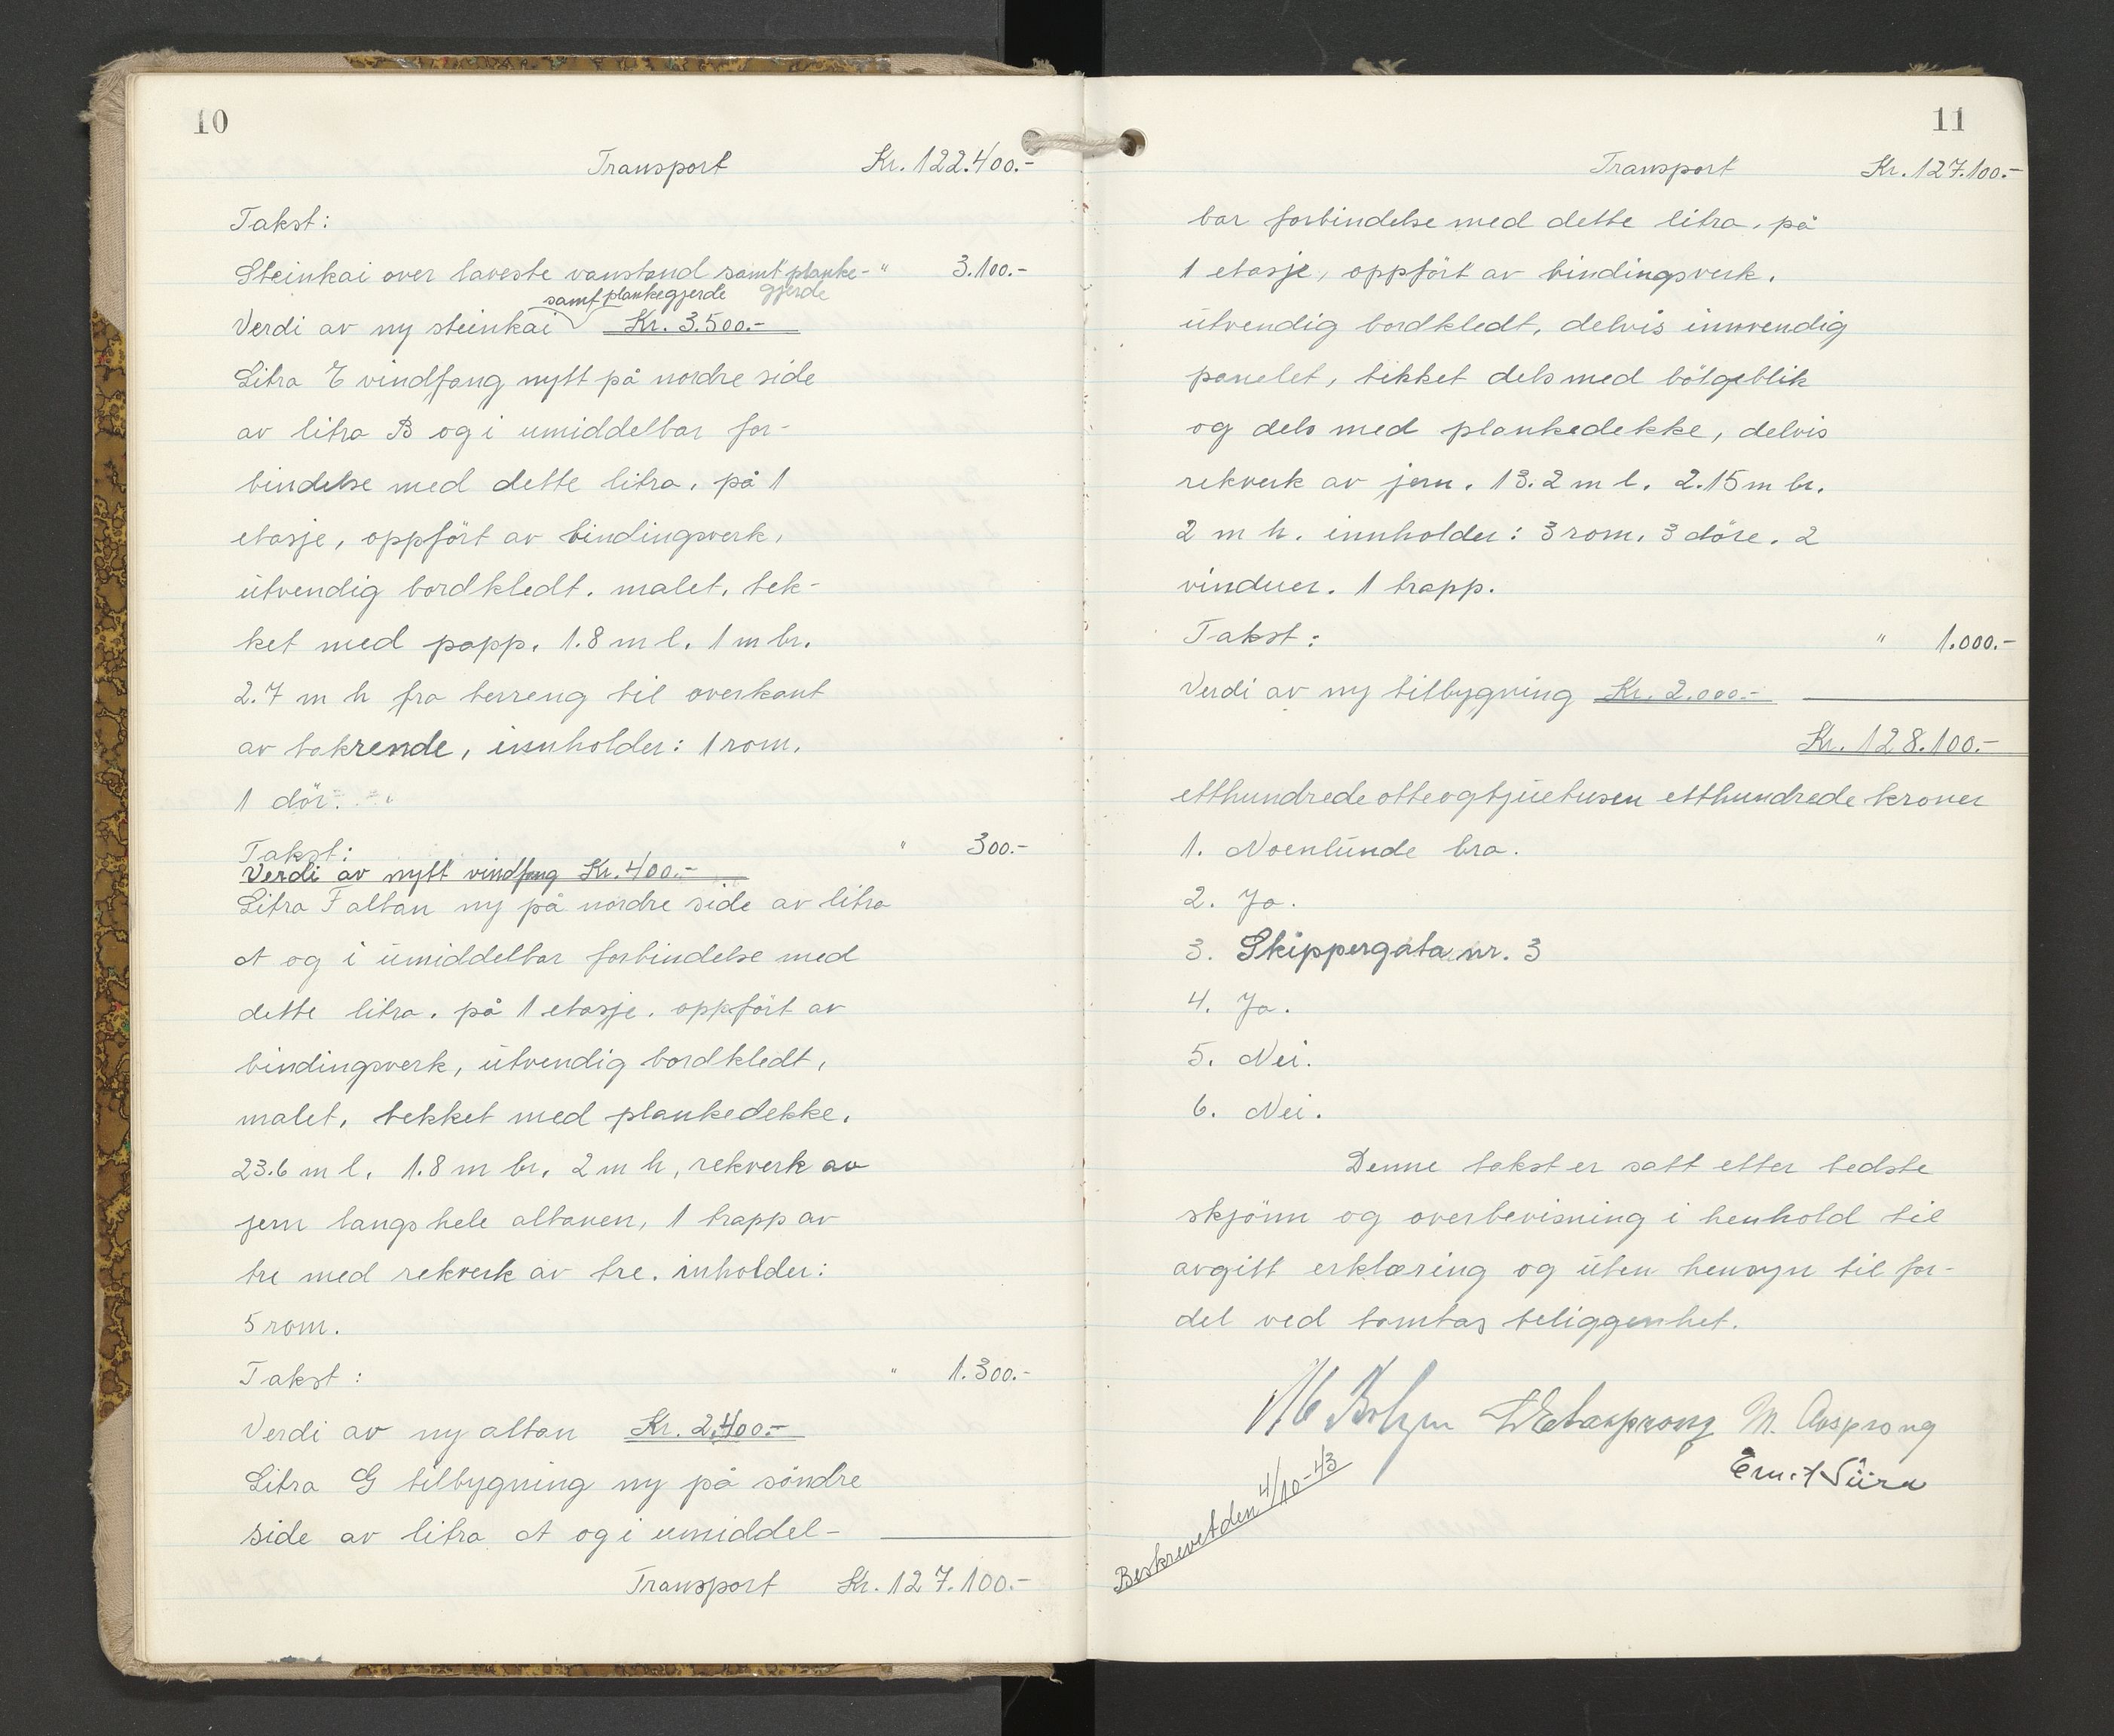 10
Transport Kr. 122.400.-
Takst:
Steinkai over laveste vanstand samt planke- " 3.100.-
gjerde
samt plankegjerde
Verdi av ny steinkai Kr. 3.500.-
Litra E vindfang nytt på nordre side
av litra B og i umiddelbar for-
bindelse med dette litra, på 1
etasje, oppfört av bindingsverk,
utvendig bordkledt. malet. tek-
ket med papp. 1.8 m l. 1 m br.
2.7 m h fra terreng til overkant
av takrende, innholder: 1 rom.
1 dör.
Takst: " 300.-
Verdi av nytt vindfang Kr. 400.-
Litra F altan ny på nordre side av litra
A og i umiddelbar forbindelse med
dette litra. på 1 etasje. oppfört av
bindingsverk, utvendig bordkledt,
malet, tekket med plankedekke.
23.6 m l. 1.8 m br. 2 m h, rekverk av
jern langs hele altanen, 1 trapp av
tre med rekverk av tre. inholder:
5 rom.
Takst: " 1.300.-
Verdi av ny altan Kr. 2.400.-
Litra G tilbygning ny på söndre
side av litra A og i umiddel-
Transport Kr. 127.100.-
11
Transport Kr. 127.100.-
bar forbindelse med dette litra, på
1 etasje, oppfört av bindingsverk.
utvendig bordkledt, delvis innvendig
panelet, tekket dels med bölgeblik
og dels med plankedekke, delvis
rekverk av jern. 13.2 m l. 2.15 m br.
2 m h. innholder: 3 rom. 3 döre. 2
vinduer. 1 trapp.
Takst: " 1.000.-
Verdi av ny tilbygning Kr. 2.000.-
Kr. 128.100.-
etthundrede otteogtjuetusen etthundrede kroner
1. Noenlunde bra.
2. Ja.
3. Skippergata nr. 3
4. Ja.
5. Nei.
6. Nei.
Denne takst er satt etter bedste
skjönn og overbevisning i henhold til
avgitt erklæring og uten hensyn til for-
del ved tomtas beliggenhet.
M. Avsprong
Beskrevet den 4/10-43